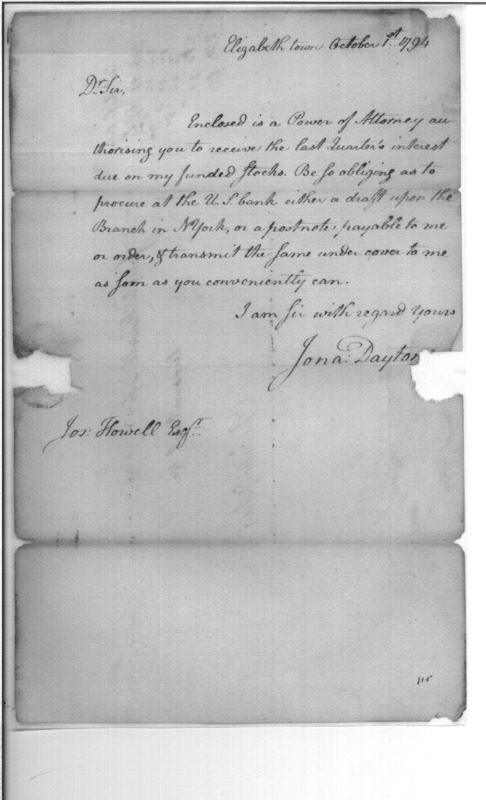 Elizabeth town October 1st. 1794
Dr. Sir,
Enclosed is a Power of Attorney au
thorising you to receive the last Quarter's interest
due on my funded stocks. Be so obliging as to
procure at the U.S. bank either a draft upon the
Branch in N.York, or a postnote, payable to me
or order, & transmit the same under cover to me
as soon as you conveniently can.
I am Sir with regard Yours
Jona: Dayton
Jos: Howell Esqr.
115